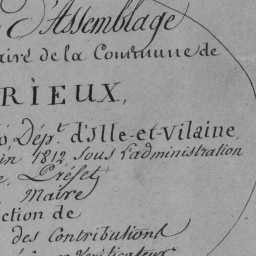 d'Assemblage
de la Commune de
RIEUX,
Dép.t d'Ille-et-Vilaine,
1812, sous l'administration
Préfet
Maire
ction de
des Contributions